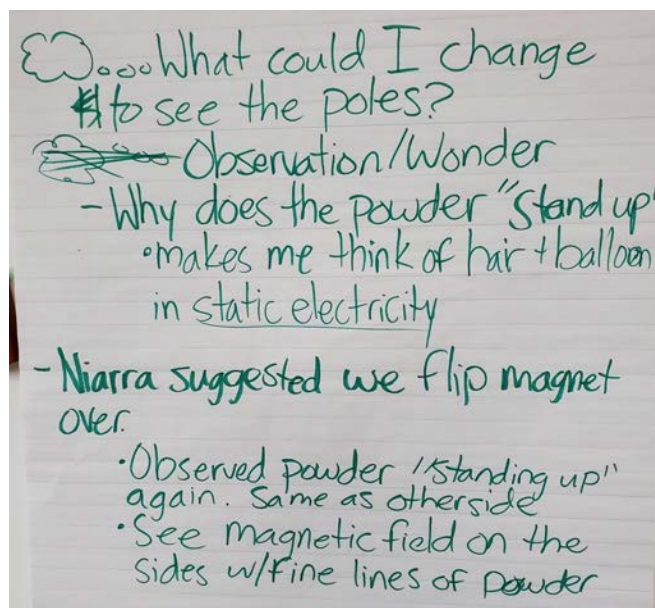 ...What could I change
to see the poles?
Observation/Wonder
- Why does the powder "stand up"
• makes me think of hair + balloon
in static electricity
- Niarra suggested we flip magnet
over.
• Observed powder "standing up"
again. Same as otherside
• See magnetic field on the
sides w/fine lines of powder